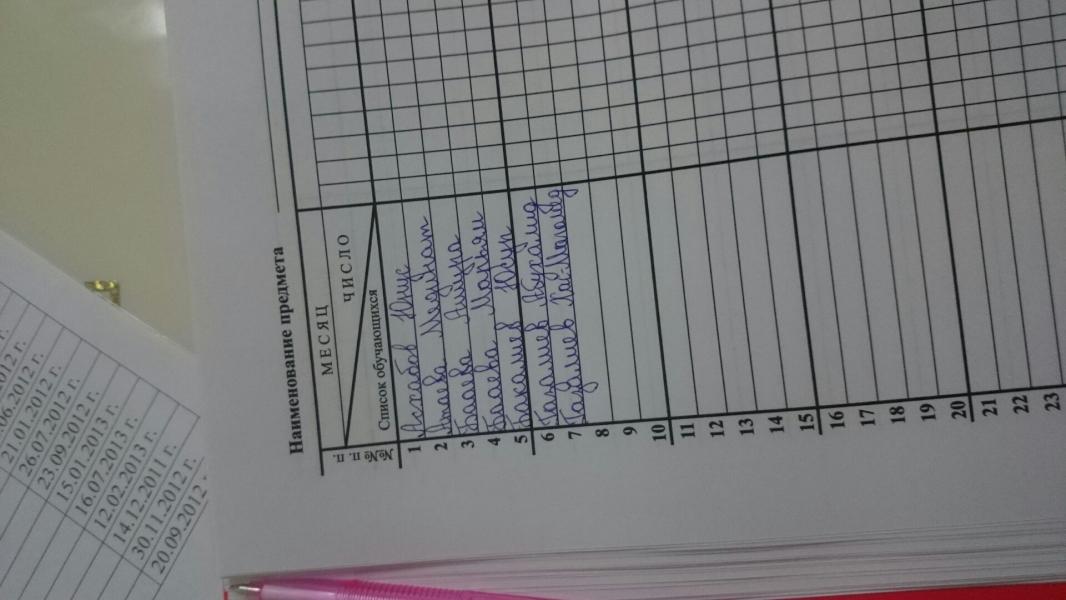 Наименование предмета
МЕСЯЦ
ЧИСЛО
Список обучающихся
№№ п. п.
1 Атабов Юнус
2 Атаева Мединат
3 Бадаева Айзура
4 Бадаева Марьям
5 Бакашев Юсуп
6
7
8
9
10
11
12
13
14
15
16
17
18
19
20
21
22
23
06.2012 г.
21.01.2012 г.
26.07.2012 г.
23.09.2012 г.
15.01.2013 г.
16.07.2013 г.
12.02.2013 г.
14.12.2011 г.
30.11.2012 г.
20.09.2012 г.